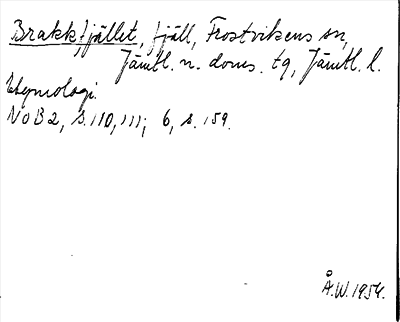 Brakkfjället, fjäll, Frostvikens sn,
Jämtl. n. doms. tg, Jämtl. l.
Etymologi.
NoB 2, s. 110, 111; 6, s. 159.
Å.W. 1954.